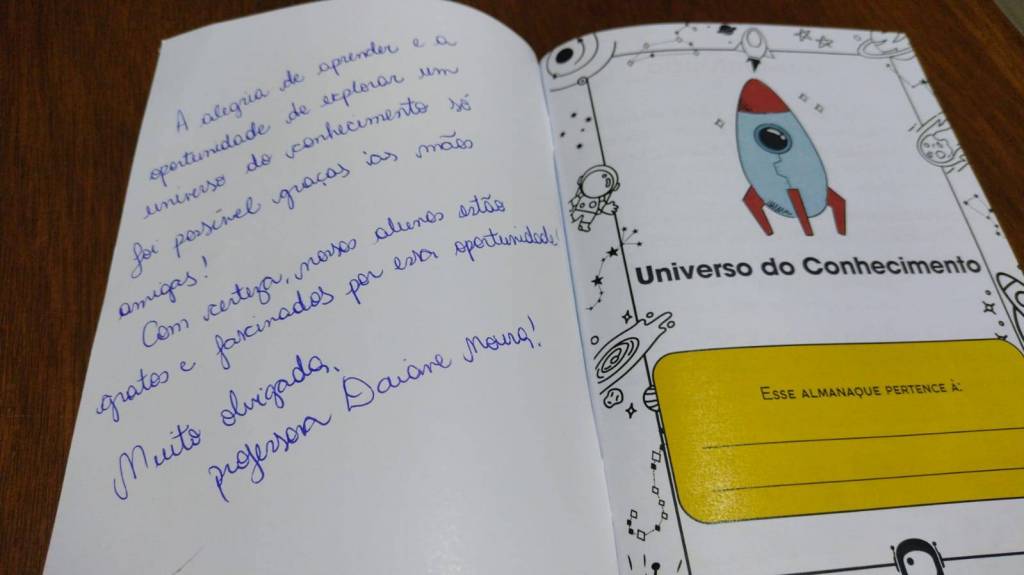 A alegria de aprender e a
oportunidade de explorar um
universo do conhecimento só
foi possível graças às mãos
amigas!
Com certeza, nossos alunos estão
gratos e fascinados por essa oportunidade!
Muito obrigada,
professora Daiane Moura!
Universo do Conhecimento
ESSE ALMANAQUE PERTENCE À: